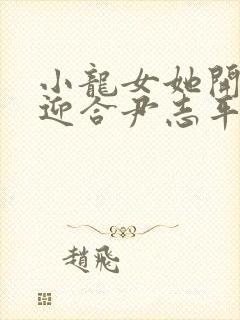 小龍女她開
迎合尹志平
趙飛